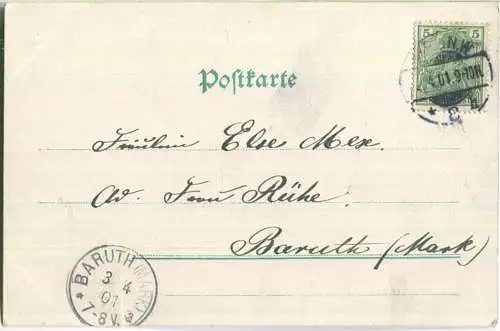 5
N.W.
4.01.9-10N.
Postkarte
Fräulein Else Mex.
Ad. Frau Rühe.
Baruth (Mark)
* BARUTH (MARK)
3 4
01
7-8V.